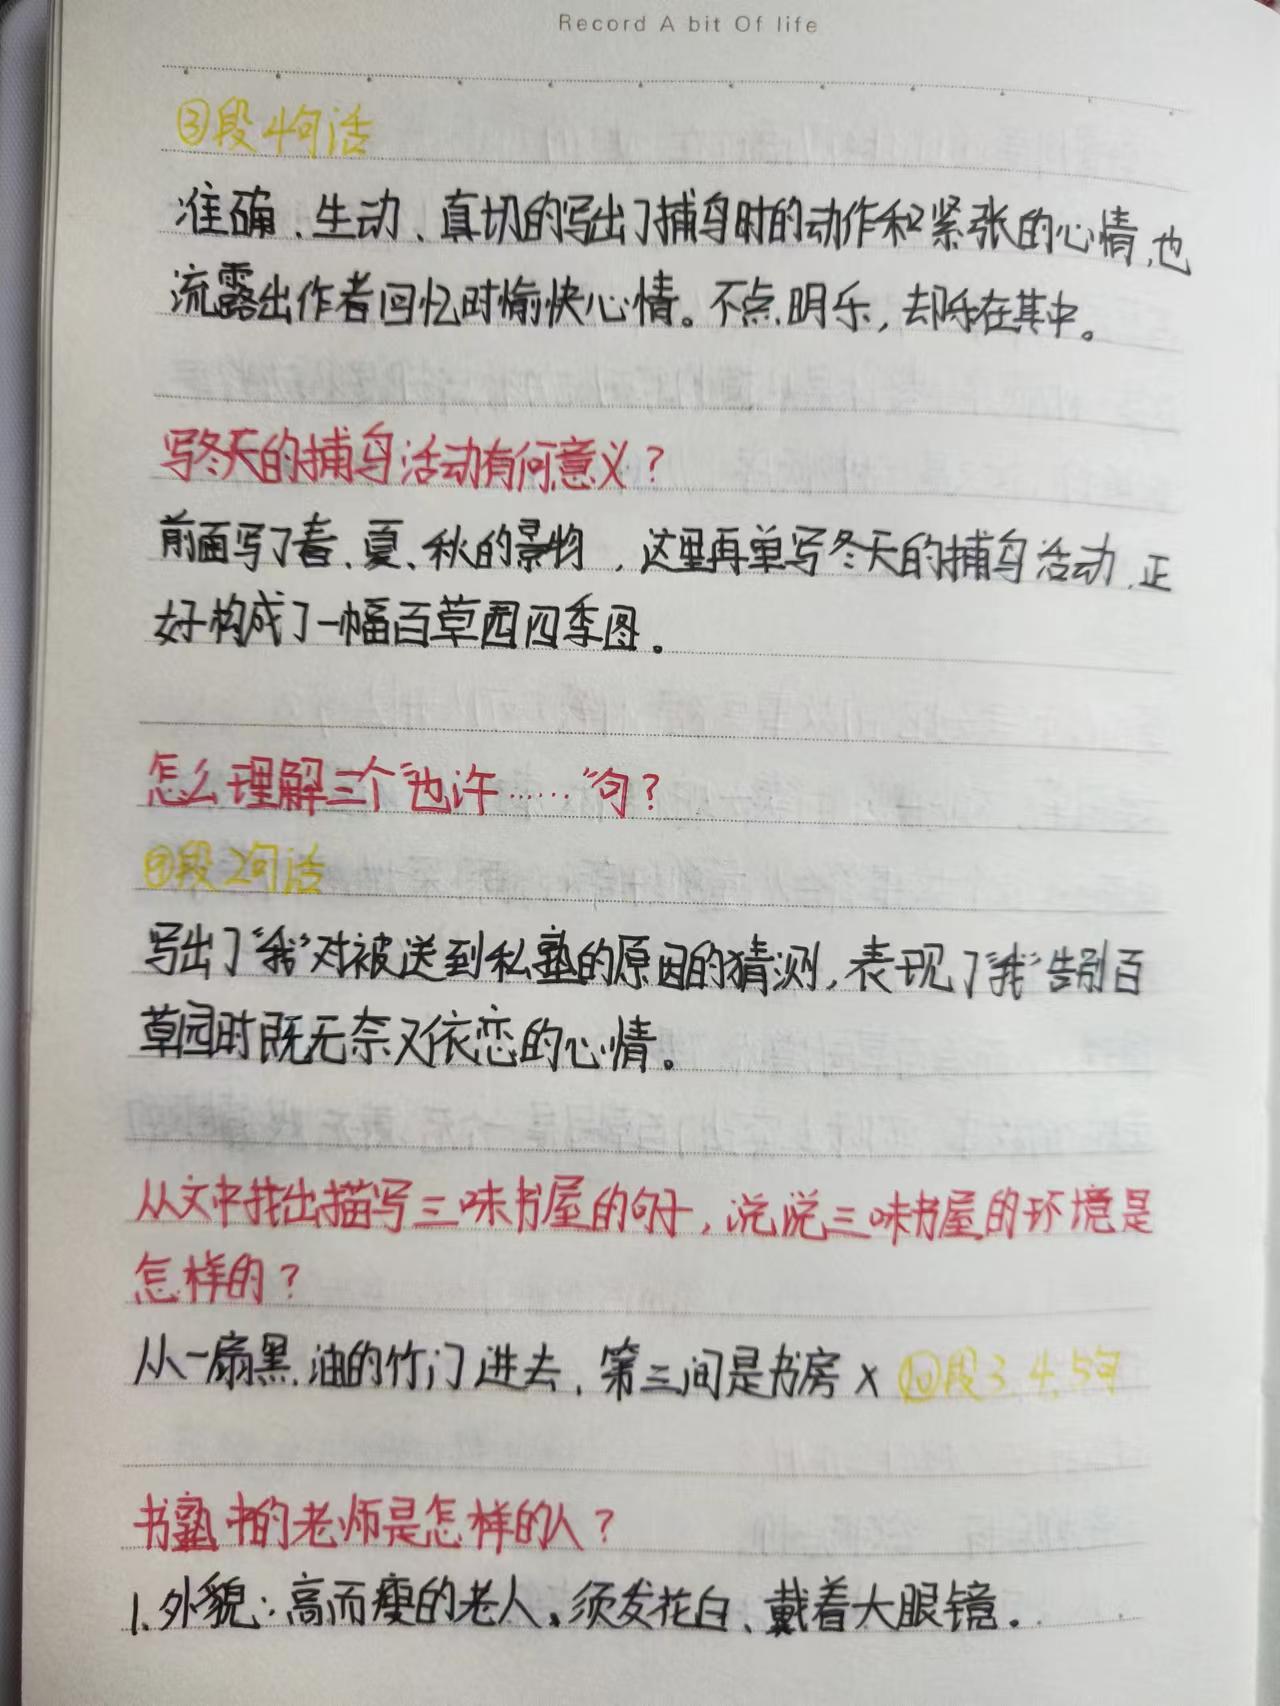 Record A bit Of life
③段4句话
准确、生动、真切的写出了捕鸟时的动作和紧张的心情,也
流露出作者回忆时愉快心情。不点明乐,却乐在其中。
写冬天的捕鸟活动有何意义?
前面写了春、夏、秋的景物,这里再单写冬天的捕鸟活动,正
好构成了一幅百草园四季图。
怎么理解三个“也许……”句?
⑨段2句话
写出了“我”对被送到私塾的原因的猜测,表现了“我”告别百
草园时既无奈又依恋的心情。
从文中找出描写三味书屋的句子,说说三味书屋的环境是
怎样的?
从一扇黑油的竹门进去,第三间是书房 × ⑩段3、4、5句
书塾中的老师是怎样的人?
1.外貌:高而瘦的老人。须发花白、戴着大眼镜。